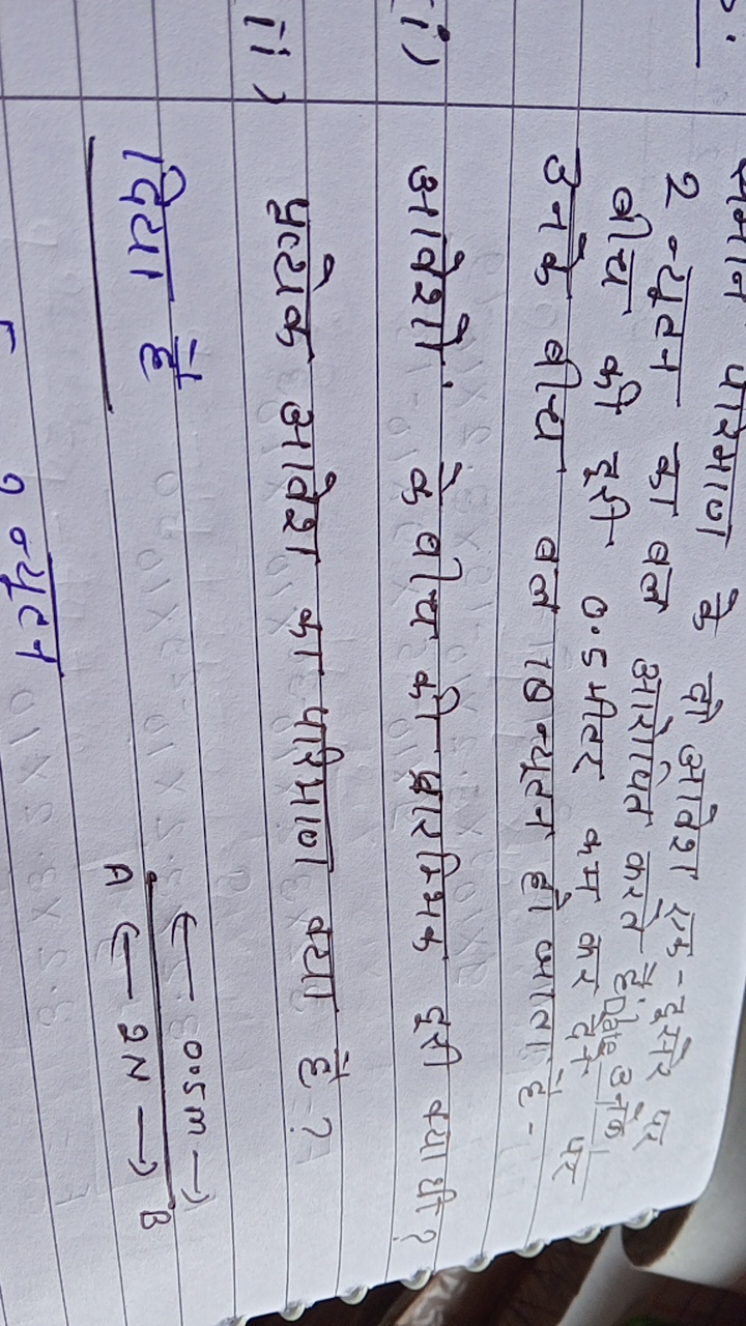 समान परिमाण के दो आवेश एक-दूसरे पर
2 न्यूतन का वल आरोपित करते हैं Date उनके
बीच की दूरी 0.5 मीटर कम कर देने पर
उनके बीच वल 18 न्यूतन हो जाता है -
i) आवेशों के बीच की प्रारम्भिक दूरी क्या थी?
ii) प्रत्येक आवेश का परिमाण क्या है?
दिया है
← 0.5m →
A ← 2N → B
2 न्यूटन